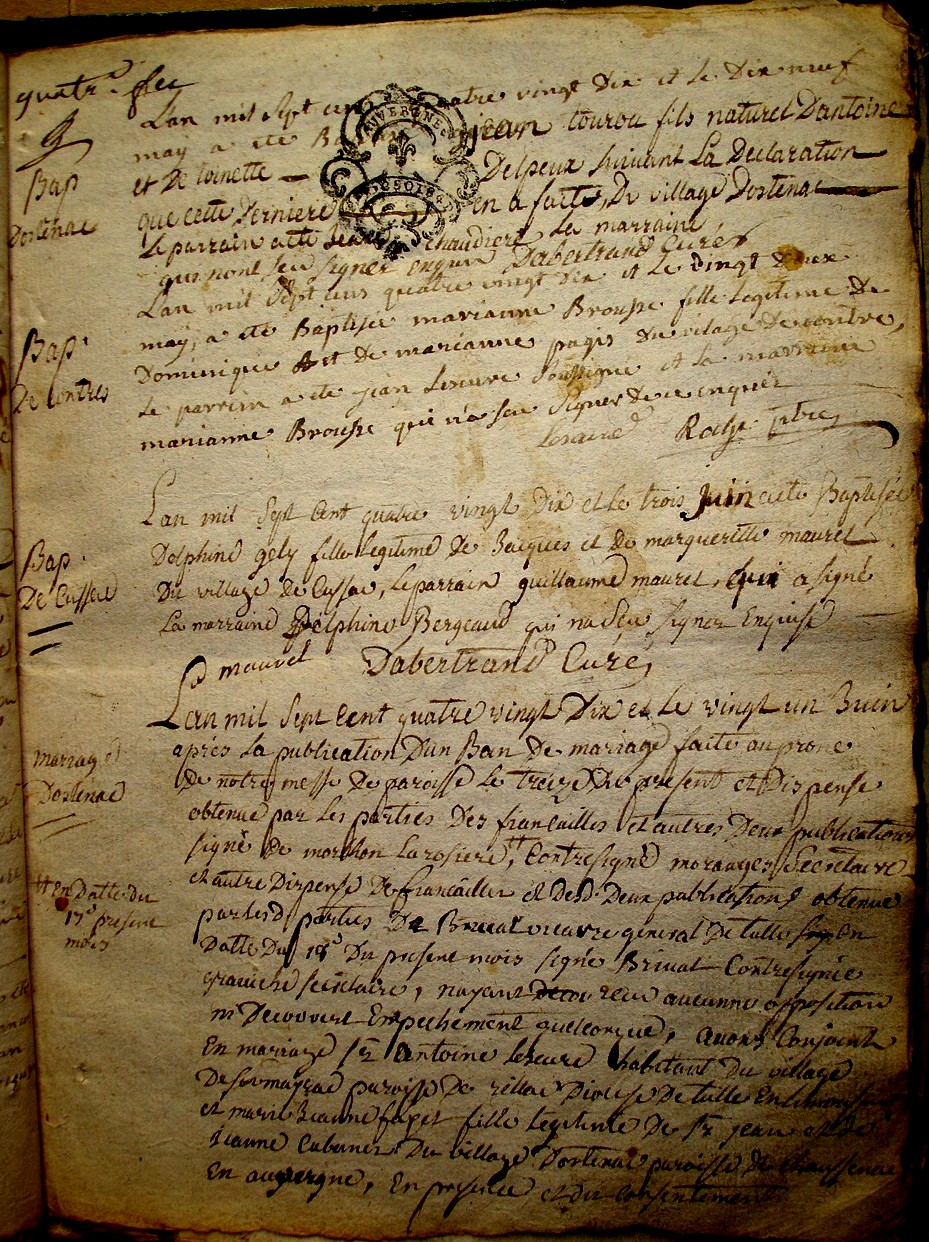 quatr.e
Lan mil sept cens quatre vingt dix et le dix neuf
may a ete Jean tourou fils naturel Dantoine
Bap
Dostenac
et De toinette Delpeux suivant La Declaration
que cette Derniere en a faite, Du village Dostenac
Le parrain a ete Jean chaudiere, La marraine
qui nont seu signer enquis Dabertrand Curé
AUVERGNE
Lan mil Sept cens quatre vingt dix et le vingt deux
Bap
De contres
may, a ete Baptisée marianne Brousse fille Legitime De
Dominique et De marianne pagis Du village De contre,
Le parrin a ete jean Leseure et La marraine
marianne Brousse qui na seu signer de ce enquise
Roche ptre
Lan mil Sept Cent quatre vingt Dix et Le trois Juin a ete Baptisée
Bap
De Cussac
Delphine gely fille Legitime De Jacques et De marguerite mauret
Du village De Cussac, Le parrain guillaume mauret, qui a signé
La marraine Delphine Bergeaud qui na seu signer Enquise
mauret Dabertrand Curé
Lan mil Sept Cent quatre vingt Dix et Le vingt un Juin
mariage
Dostenac
après La publication Dun Ban De mariage faite au prone
De notre messe De paroisse Le treize Du present et Dispense
obtenue par Les parties Des fiancailles et autres Deux publications
signé De Contresigné Secretaire
++ En Datte du
17e present
mois
et autre Dispense De fiancailles et Desd. Deux publications obtenue
par Lesd. parties De Brival vicaire general De tulle En
Datte Du 18e Du present mois signé Brival Contresigné
secretaire, nayant recu aucunne opposition
ni Decouvert Empechement quelconque, avons Conjoint
En mariage Sr. Antoine Leseure habitant Du village
paroisse De rillac Diocese De tulle En Limousin
et marie Jeanne fille Legitime De Sr. jean et de
Jeanne Du village Dostenac paroisse De Chaussenac
En auvergne, En presence et du Consentement